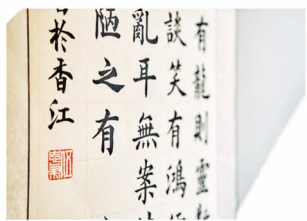 有龍則靈
談笑有鴻
亂耳無案
陋之有
於香江